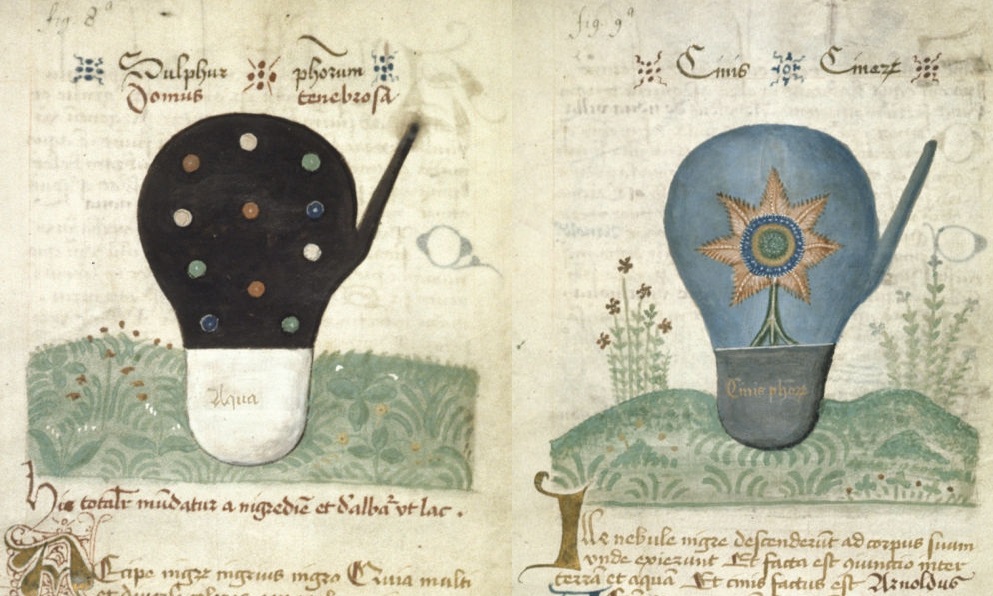 fig. 8ª
Sulphur phorum
Domus tenebrosa
Aqua
Hic totalr mūdatur a nigrediē et dalbaᵗ vt lac.
Accipe nigrū nigrius nigro Quia multi
fig. 9ª
Cinis Cinerꝝ
Cinis phorꝝ
Ille nebule nigre descenderūt ad corpus suum
vnde exierunt Et facta est quinctio inter
terrā et aquā Et cinis factus est Arnoldus